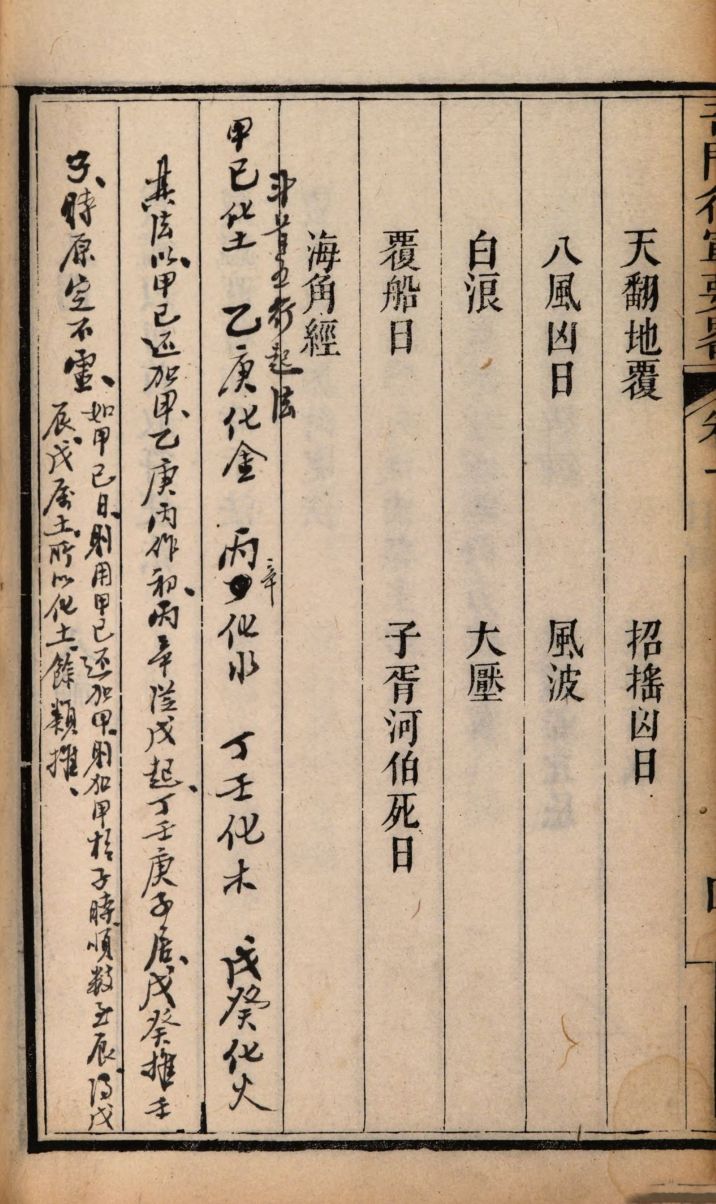 奇門行軍要畧
卷一
四
天翻地覆　招搖凶日
八風凶日　風波
白浪　大壓
覆船日　子胥河伯死日
海角經
斗首五行起法
甲已化土　乙庚化金　丙辛化水　丁壬化木　戊癸化火
其法以甲已还加甲、乙庚丙作初、丙辛從戊起、丁壬庚子居、戊癸推壬
子、時原定不虛、
如甲已日、則用甲已还加甲、則加甲於子時、順数至辰、得戊
辰、戊属土、所以化土、餘類推、